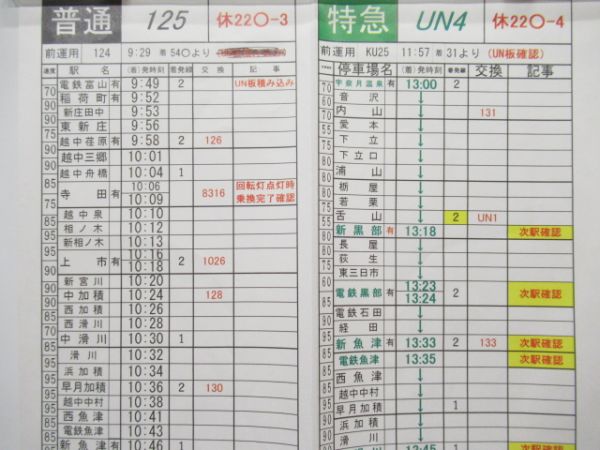 普通 125 休22〇-3
前運用 124 9:29 着 54〇より
速度 駅名 (着)発時刻 着発線 交換 記事
70 電鉄富山 有 9:49 2 UN板積み込み
稲荷町 有 9:52
新庄田中 9:53
東新庄 9:56
越中荏原 有 9:58 2 126
越中三郷 10:01
越中舟橋 10:04 1
寺田 有 10:06 10:09 8316 回転灯点灯時 乗換完了確認
越中泉 10:10
相ノ木 10:12
新相ノ木 10:13
上市 有 10:16 10:18 2 1026
新宮川 10:20
中加積 10:24 128
西加積 10:26
西滑川 10:28
中滑川 10:30 1
滑川 10:32
浜加積 10:34
早月加積 10:36 2 130
越中中村 10:38
西魚津 10:41
電鉄魚津 10:43
新魚津 有 10:46 1
特急 UN4 休22〇-4
前運用 KU25 11:57 着 31より (UN板確認)
停車場名 (着)発時刻 着発線 交換 記事
70 宇奈月温泉 有 13:00 2
音沢 ↓
内山 ↓ 131
愛本 ↓
下立 ↓
下立口 ↓
浦山 ↓
栃屋 ↓
若栗 ↓
舌山 ↓ 2 UN1
新黒部 有 13:18 次駅確認
長屋 ↓
荻生 ↓
東三日市 ↓
電鉄黒部 有 13:23 13:24 2 次駅確認
電鉄石田 ↓
経田 ↓
新魚津 有 13:33 2 133 次駅確認
電鉄魚津 13:35 次駅確認
西魚津 ↓
越中中村 ↓
早月加積 ↓ 1
浜加積 ↓
滑川 ↓